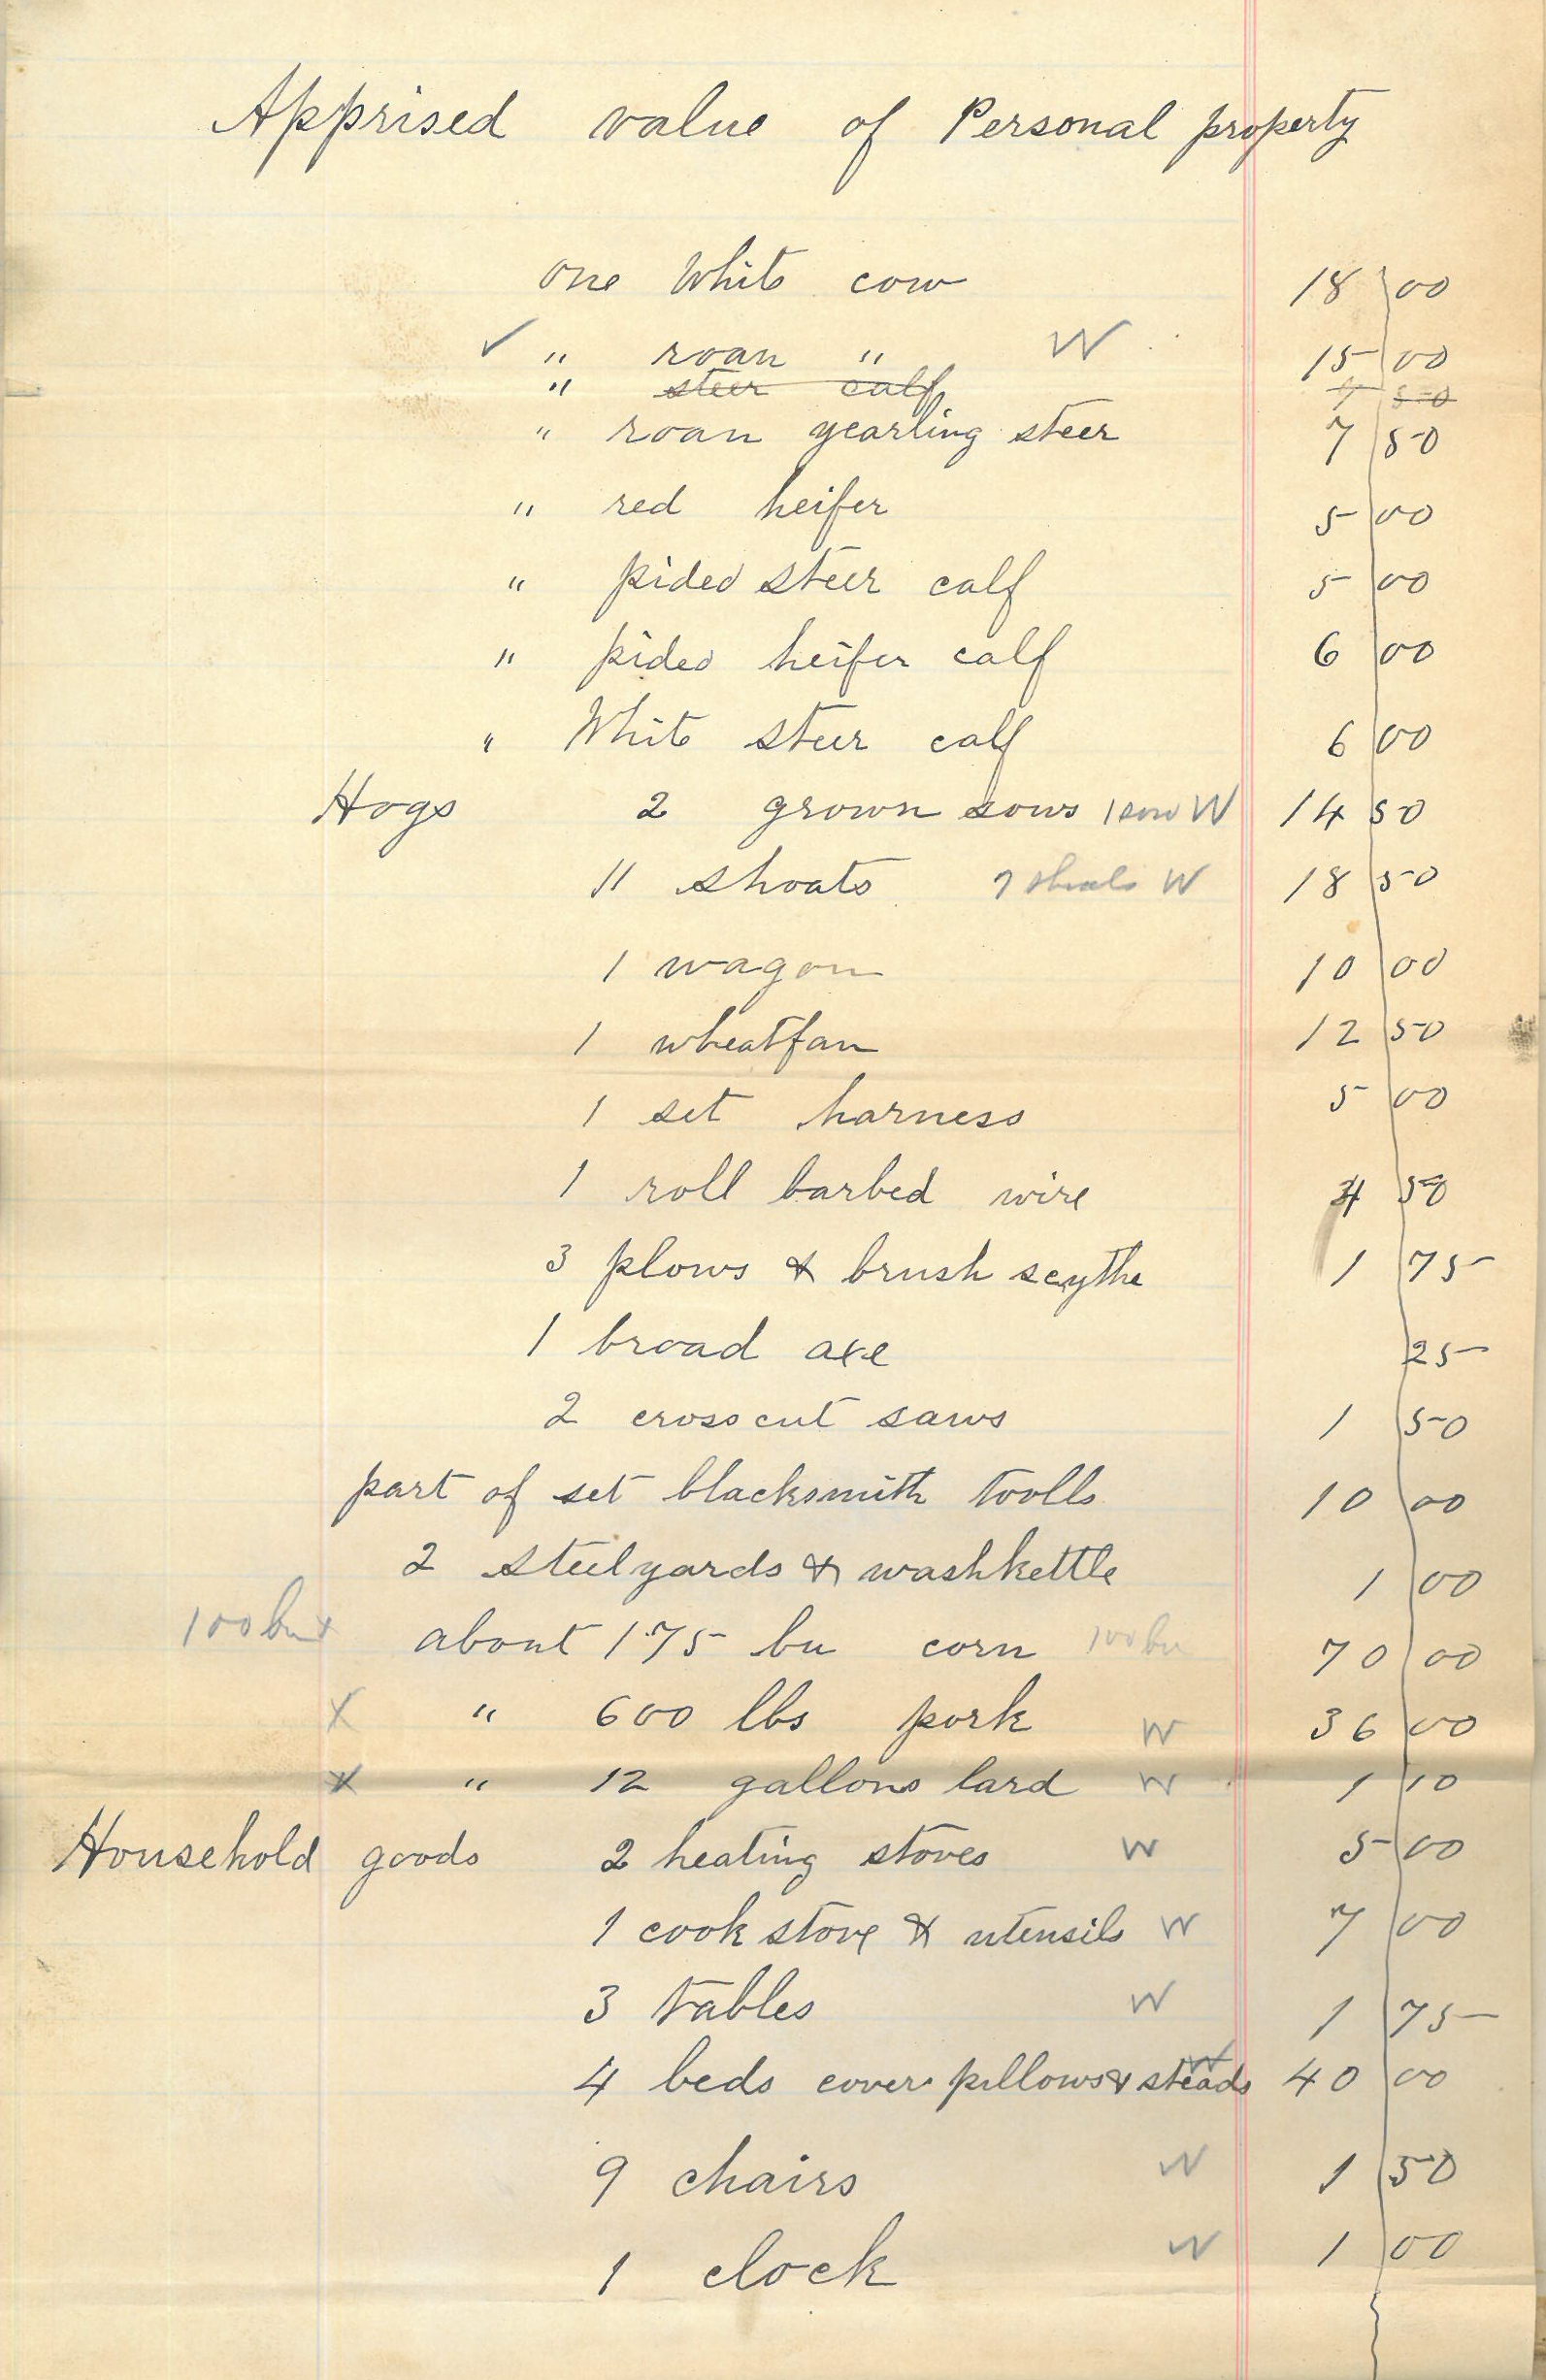 Apprised value of Personal property
one White cow 18 00
✓ " roan " W 15 00
" steer calf 7 50
" roan yearling steer 7 50
" red heifer 5 00
" pided steer calf 5 00
" pided heifer calf 6 00
" White steer calf 6 00
Hogs 2 grown sows 1 sow W 14 50
11 shoats 7 shoats W 18 50
1 wagon 10 00
1 wheatfan 12 50
1 set harness 5 00
1 roll barbed wire 4 50
3 plows & brush scythe 1 75
1 broad axe 25
2 crosscut saws 1 50
part of set blacksmith toolls 10 00
2 steelyards & washkettle 1 00
100 bu x about 175 bu corn 100 bu 70 00
x " 600 lbs pork W 36 00
x " 12 gallons lard W 1 10
Household goods 2 heating stoves W 5 00
1 cook stove & utensils W 7 00
3 tables W 1 75
4 beds cover pillows & steads W 40 00
9 chairs W 1 50
1 clock W 1 00